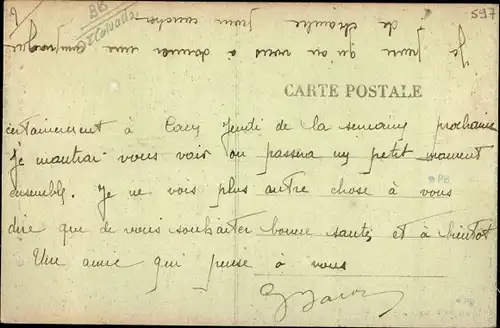 BB
Calvados
597
Je
pense qu'on vous a donner une compagne
de chambre pour coucher
CARTE POSTALE
certainement à Caen Jeudi de la semaine prochaine
Je monterai vous voir on passera un petit moment
ensemble. Je ne vois plus autre chose à vous
dire que de vous souhaiter bonne santé, et à bientot
Une amie qui pense à vous